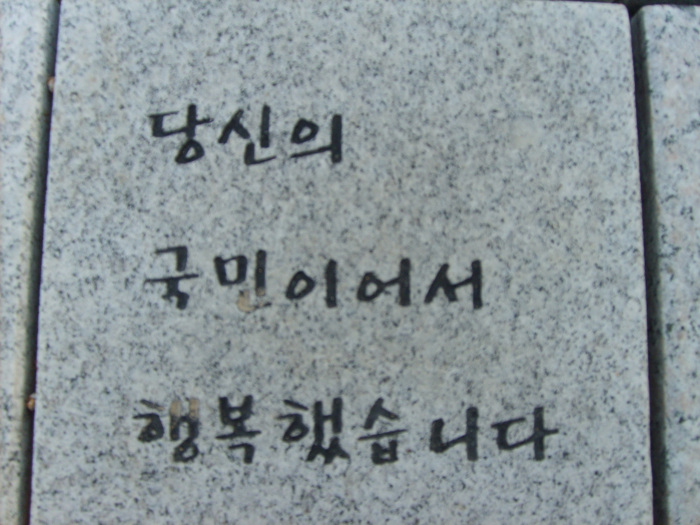 당신의
국민이어서
행복했습니다